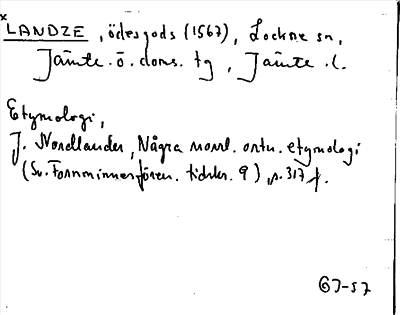 x LANDZE, ödesgods (1567), Lockne sn,
Jämte. ö. doms. tg, Jämte. l.
Etymologi,
J. Nordlander, Några norrl. ortn. etymologi
(Sv. Fornminnesfören. tidskr. 9), s. 317 f.
GJ-57